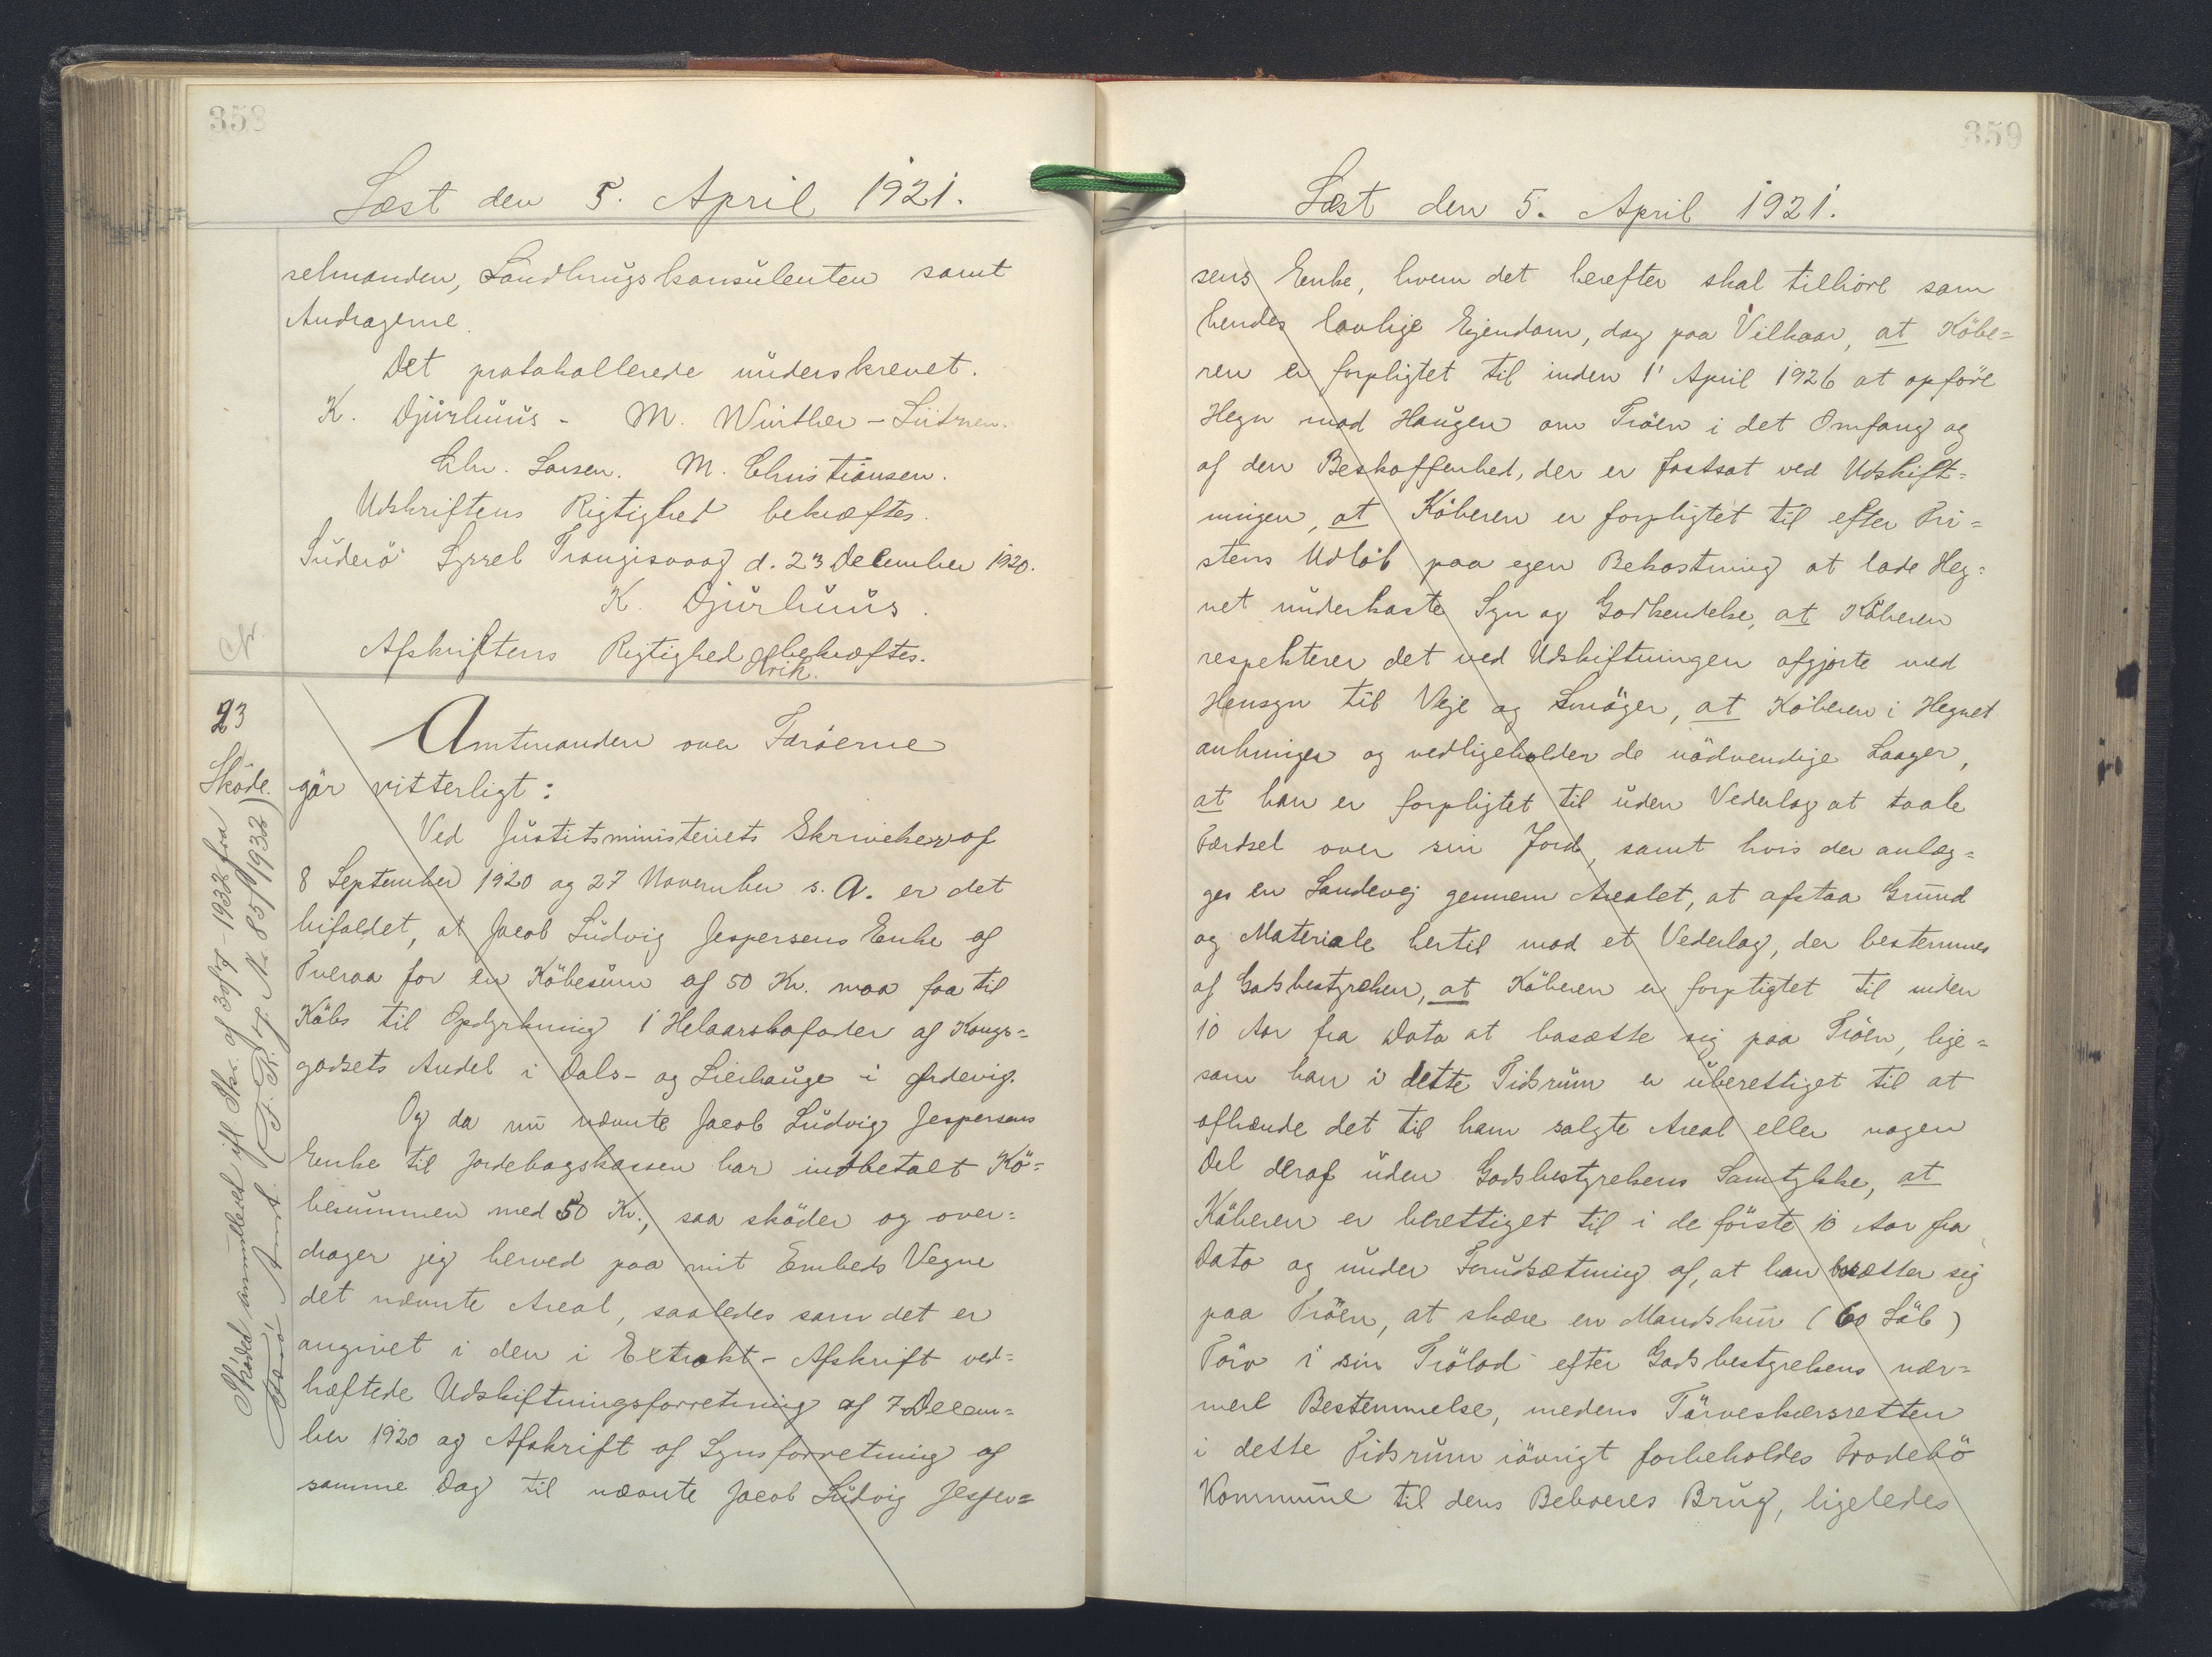 358
Læst den 5. April 1921.
selmanden, Landbrugskonsulenten samt
Andragerne.
Det protokollerede underskrevet.
K. Djurhuus - M. Winther - Lützen.
Chr. Larsen. M. Christiansen.
Udskriftens Rigtighed bekræftes.
Suderø Syssel Trangisvaag d. 23 December 1920.
K. Djurhuus.
Afskriftens Rigtighed bekræftes.
23
Skøde.
Amtmanden over Færøerne
gør vitterligt:
Ved Justitsministeriets Skrivelser af
8 September 1920 og 27 November s. A. er det
bifaldet, at Jacob Ludvig Jespersens Enke af
Tveraa for en Købesum af 50 Kr. maa faa til
Købs til Opdyrkning 1 Helaarskofoder af Kongs=
godsets Andel i Dals- og Lierhauge i Ørdevig.
Og da nu nævnte Jacob Ludvig Jespersens
Enke til Jordebogskassen har indbetalt Kö=
besummen med 50 Kr., saa skøder og over=
drager jeg herved paa mit Embeds Vegne
det nævnte Areal, saaledes som det er
angivet i den i Extrakt-Afskrift ved=
hæftede Udskiftningsforretning af 7 Decem=
ber 1920 og Afskrift af Synsforretning af
samme Dag til nævnte Jacob Ludvig Jesper=
Skødet annulleret ifl Skr. af 30/9-1932 fra
Færø Amt. (F. R. J. No 85/1932)
359
Læst den 5. April 1921.
sens Enke, hvem det herefter skal tilhøre som
hendes lovlige Ejendom, dog paa Vilkaar, at Købe=
ren er forpligtet til inden 1' April 1926 at opføre
Hegn mod Haugen om Trøen i det Omfang og
af den Beskaffenhed, der er fastsat ved Udskift=
ningen, at Køberen er forpligtet til efter Fri=
stens Udløb paa egen Bekostning at lade Heg=
net underkaste Syn og Godkendelse, at Køberen
respekterer det ved Udskiftningen afgjorte med
Hensyn til Veje og Smøger, at Køberen i Hegnet
anbringer og vedligeholder de nødvendige Laager,
at han er forpligtet til uden Vederlag at taale
Færdsel over sin Jord, samt hvis der anlæg=
ges en Landevej gennem Arealet, at afstaa Grund
og Materiale hertil mod et Vederlag, der bestemmes
af Godsbestyrelsen, at Køberen er forpligtet til inden
10 Aar fra Dato at bosætte sig paa Trøen, lige=
som han i dette Tidsrum er uberettiget til at
afhænde det til ham solgte Areal eller nogen
Del deraf uden Godsbestyrelsens Samtykke, at
Køberen er berettiget til i de første 10 Aar fra
Dato og under Forudsætning af, at han bosætter sig
paa Trøen, at skære en Mandskur (60 Løb)
Tørv i sin Trølod efter Godsbestyrelsens nær=
mere Bestemmelse, medens Tørveskærsretten
i dette Tidsrum iøvrigt forbeholdes Frodebø
Kommune til dens Beboeres Brug, ligeledes